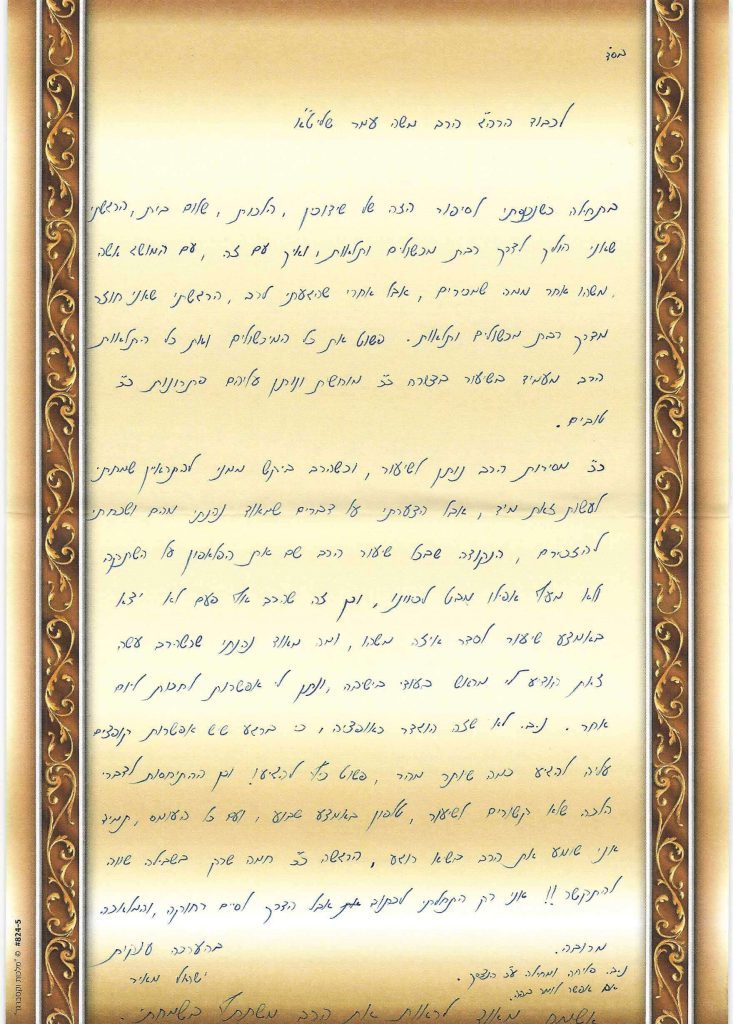 בס"ד
לכבוד הרה"ג הרב משה עמר שליט"א
בתחילה כשנכנסתי לסיפור הזה של שידוכין, הלכות, שלום בית, הרגשתי
שאני הולך לדרך רבת מכשולים ותלאות, ואיך עם זה, עם המושג אשה
משהו אחר ממה שמכירים, אבל אחרי שהגעתי לרב, הרגשתי שאני חוזר
מדרך רבת מכשולים ותלאות. פשוט את כל המיכשולים ואת כל התלאות
הרב מעמיד בשיעור בצורה כ"כ מוחשת ונותן עליהם פתרונות כ"כ
טובים.
כ"כ מסירות הרב נותן לשיעור, וכשהרב ביקש ממני להתראיין שמחתי
לעשות זאת מיד, אבל הצערתי על דברים שמאוד נהנתי מהם ושכחתי
להזכירם, הנקודה שבכל שיעור הרב שם את הפלאפון על השתקה
ולא מעיף אפילו מבט לכיוונו, וכן זה שהרב אף פעם לא יצא
באמצע שיעור לסדר איזה משהו, ומה מאוד נהנתי שכשהרב עשה
זאת הודיע לי מראש בעודי בישיבה, ונתן לי אפשרות לחכות ליום
אחר. נ.ב. לא שזה הוגדר כאופציה, כי ברגע שיש אפשרות קופצים
עליה להגיע כמה שיותר מהר, פשוט כיף להגיע! וכן ההתיחסות לדברי
הלכה שלא קשורים לשיעור, טלפון באמצע שבוע, ועם כל העומס, תמיד
אני שומע את הרב בשא רוגע, הרגשה כ"כ חמה שרק בשבילה שווה
להתקשר!! אני רק התחלתי לכתוב אבל הדרך לסיים רחוקה, והמלאכה
מרובה.
בהערכה ענקית
ישראל מאיר
נ.ב. סליחה ומחילה ע"כ הנצרך
אם אפשר לומר בפה.
אשמח מאוד לראות את הרב משתתף בשמחתי.
#824-5 © "מלכות וקסברג"